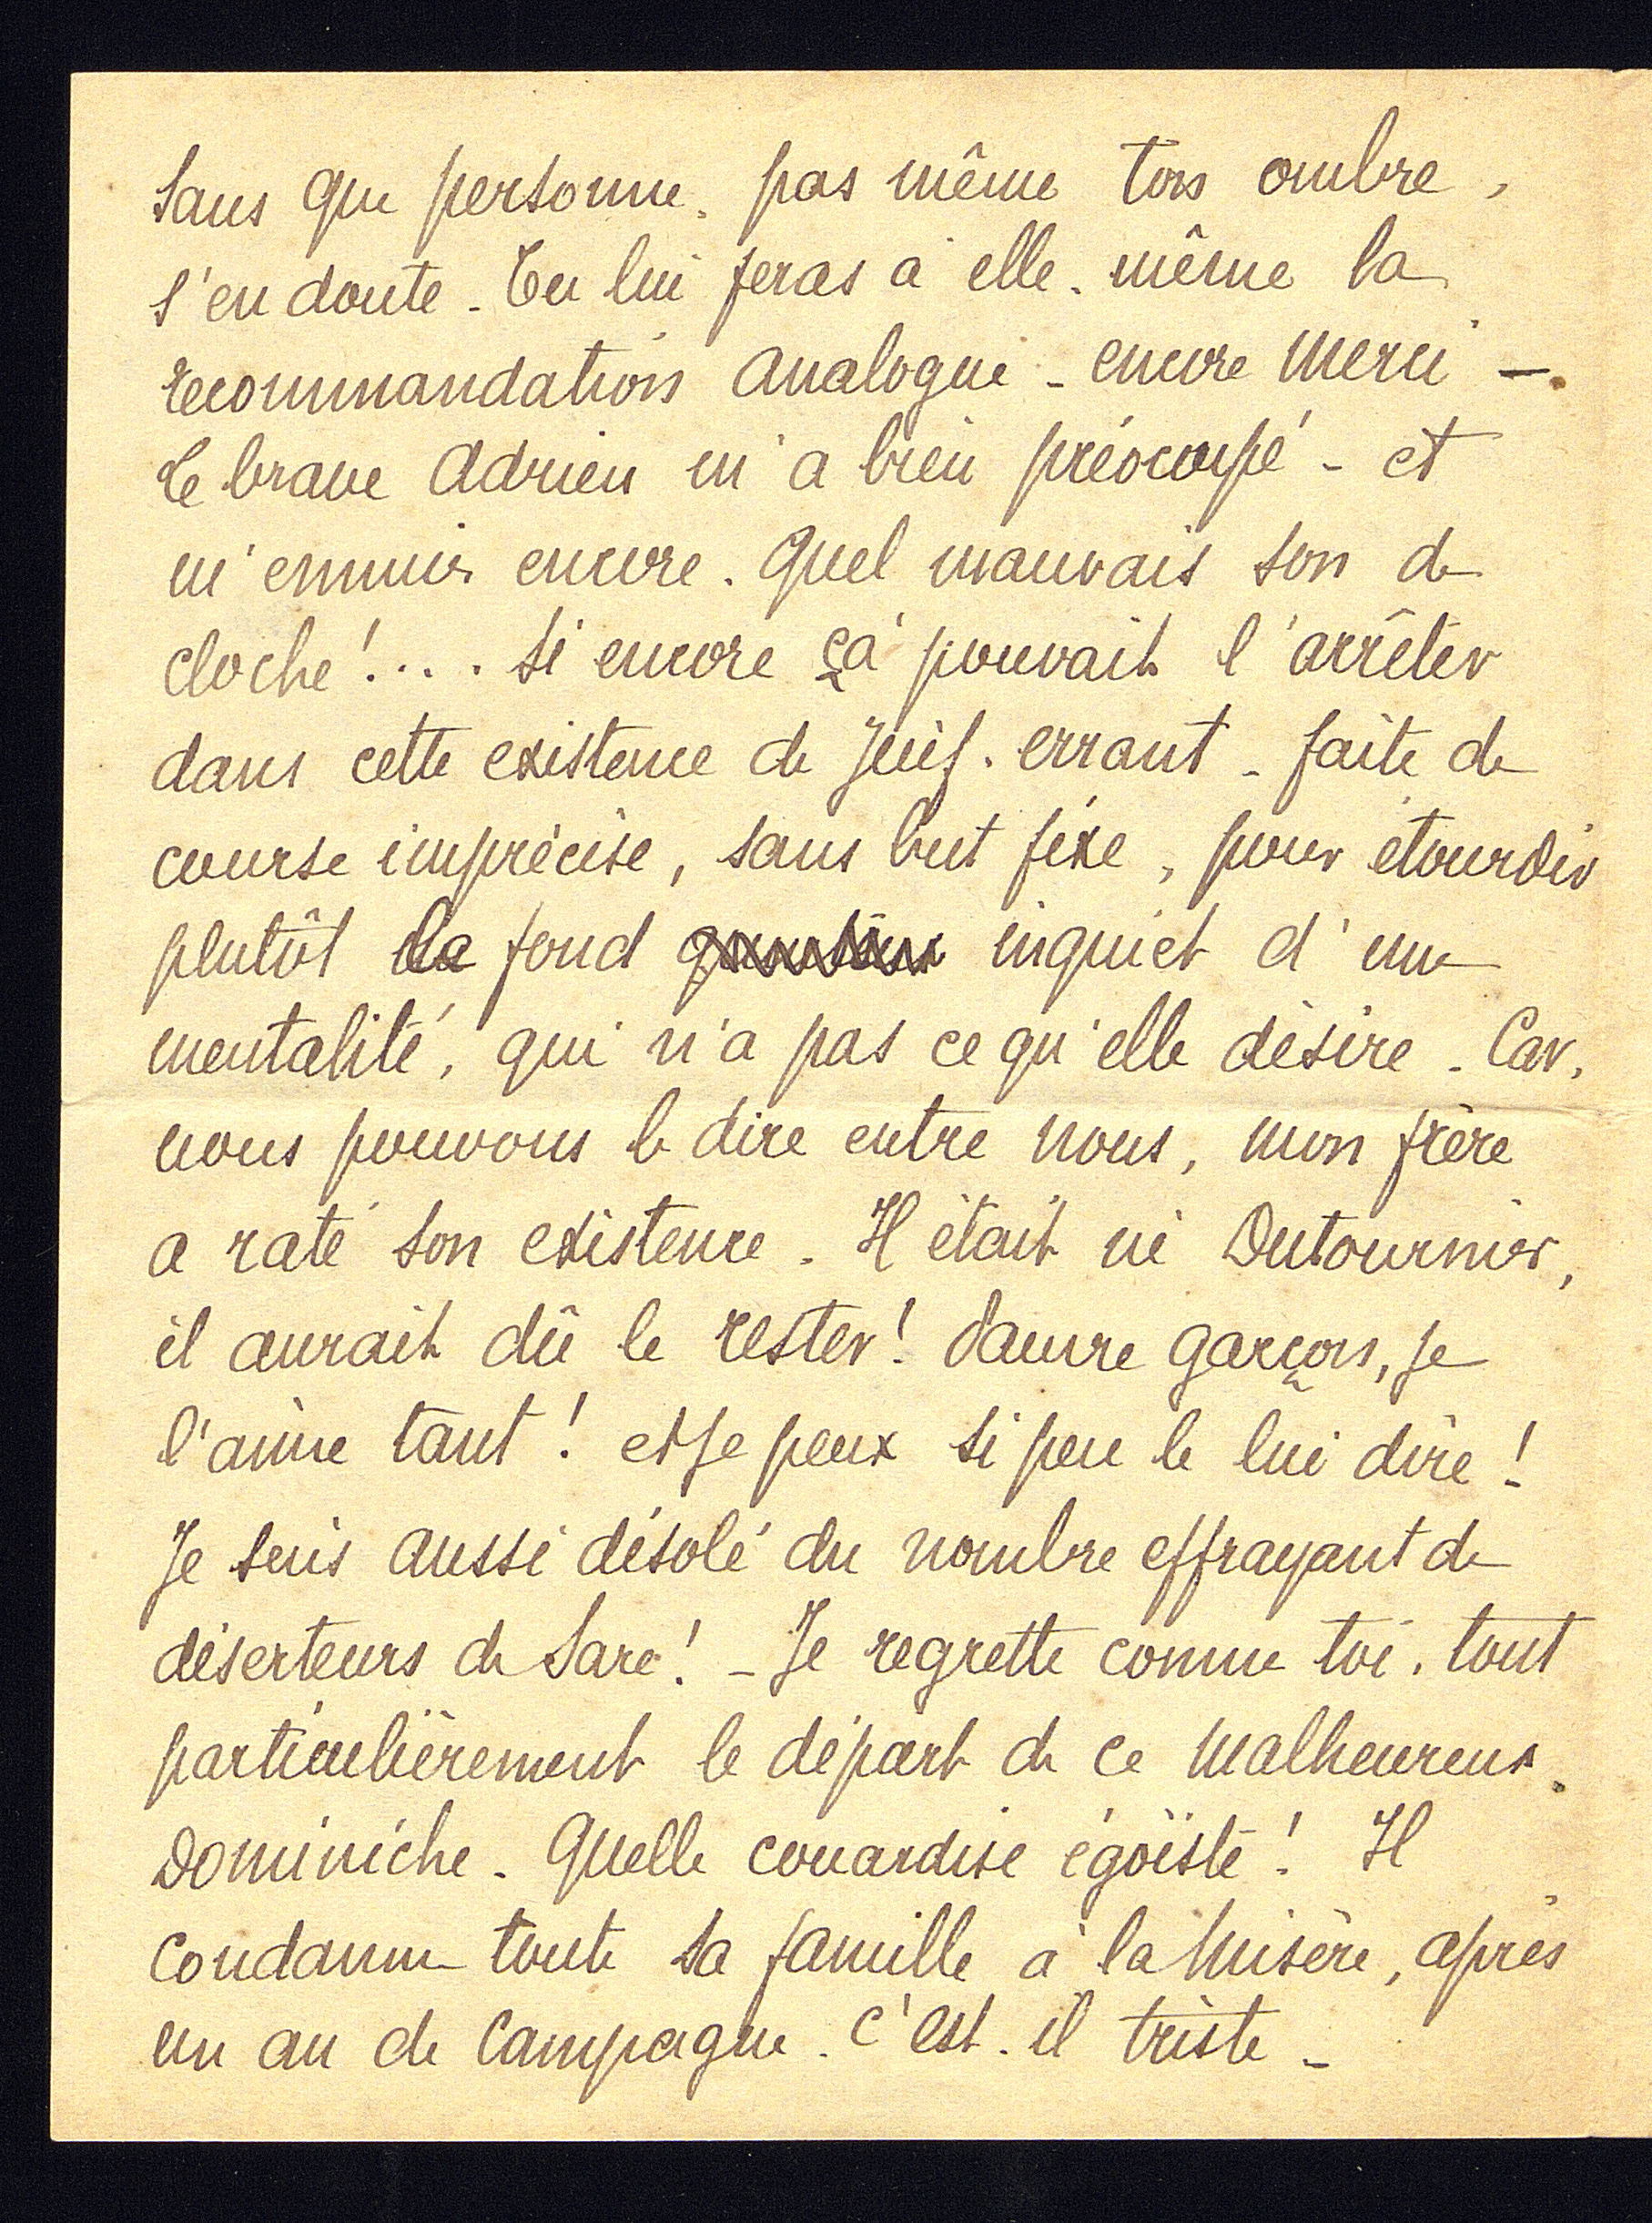 sans que personne, pas même ton ombre,
s'en doute - Tu lui feras à elle-même la
recommandation analogue - encore merci -
Ce brave Adrien m'a bien préocupé - et
m'ennuie encore. Quel mauvais son de
cloche!... Si encore ça pouvait l'arrêter
dans cette existence de Juif-errant - faite de
course imprécise, sans but fixe, pour étourdir
plutôt le fond inquiet d'une
mentalité, qui n'a pas ce qu'elle désire - Car,
nous pouvons le dire entre nous, mon frère
a raté son existence - Il était né Dutournier,
il aurait dû le rester! Pauvre garçon, je
l'aime tant! et je peux si peu le lui dire!
Je suis aussi désolé du nombre effrayant de
déserteurs de Sare! - Je regrette comme toi, tout
particulièrement le départ de ce malheureux
Dominiche - Quelle couardise égoïste! Il
condamne toute sa famille à la misère, après
un an de campagne - C'est-il triste -